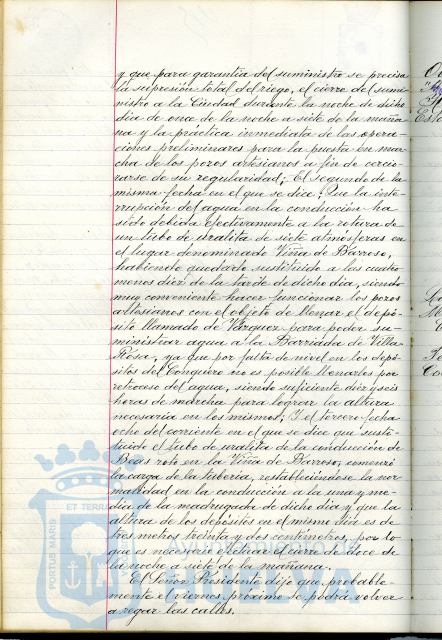 y que para garantia del suministro se precisa
la supresión total del riego, el cierre del sumi-
nistro a la Ciudad durante la noche de dicho
dia de once de la noche a siete de la maña-
na y la práctica inmediata de las opera-
ciones preliminares para la puesta en mar-
cha de los pozos artesianos a fin de cercio-
rarse de su regularidad; El segundo de la
misma fecha en el que se dice; Que la inte-
rrupción del agua en la conducción ha
sido debida efectivamente a la rotura de
un tubo de uralita de siete atmósferas en
el lugar denominado Viña de Barroso,
habiendo quedado sustituido a las cuatro
menos diez de la tarde de dicho dia, siendo
muy conveniente hacer funcionar los pozos
artesianos con el objeto de llenar el depó-
sito llamado de Vázquez para poder su-
ministrar agua a la Barriada de Villa
Rosa, ya que por falta de nivel en los depó-
sitos del Conquero no es posible llenarlos por
retroceso del agua, siendo suficiente diez y seis
horas de marcha para lograr la altura
necesaria en los mismos; Y el tercero fecha
ocho del corriente en el que se dice que susti-
tuido el tubo de uralita de la conducción de
Beas roto en la Viña de Barroso, comenzó
la carga de la tuberia, restableciéndose la nor-
malidad en la conducción a la una y me-
dia de la madrugada de dicho dia y que la
altura de los depósitos en el mismo dia es de
tres metros treinta y dos centímetros, por lo
que es necesario efectuar el cierre de doce de
la noche a siete de la mañana.
El Señor Presidente dijo que probable-
mente el viernes próximo se podrá volver
a regar las calles.
PORTUS MARIS
ET TERRAE